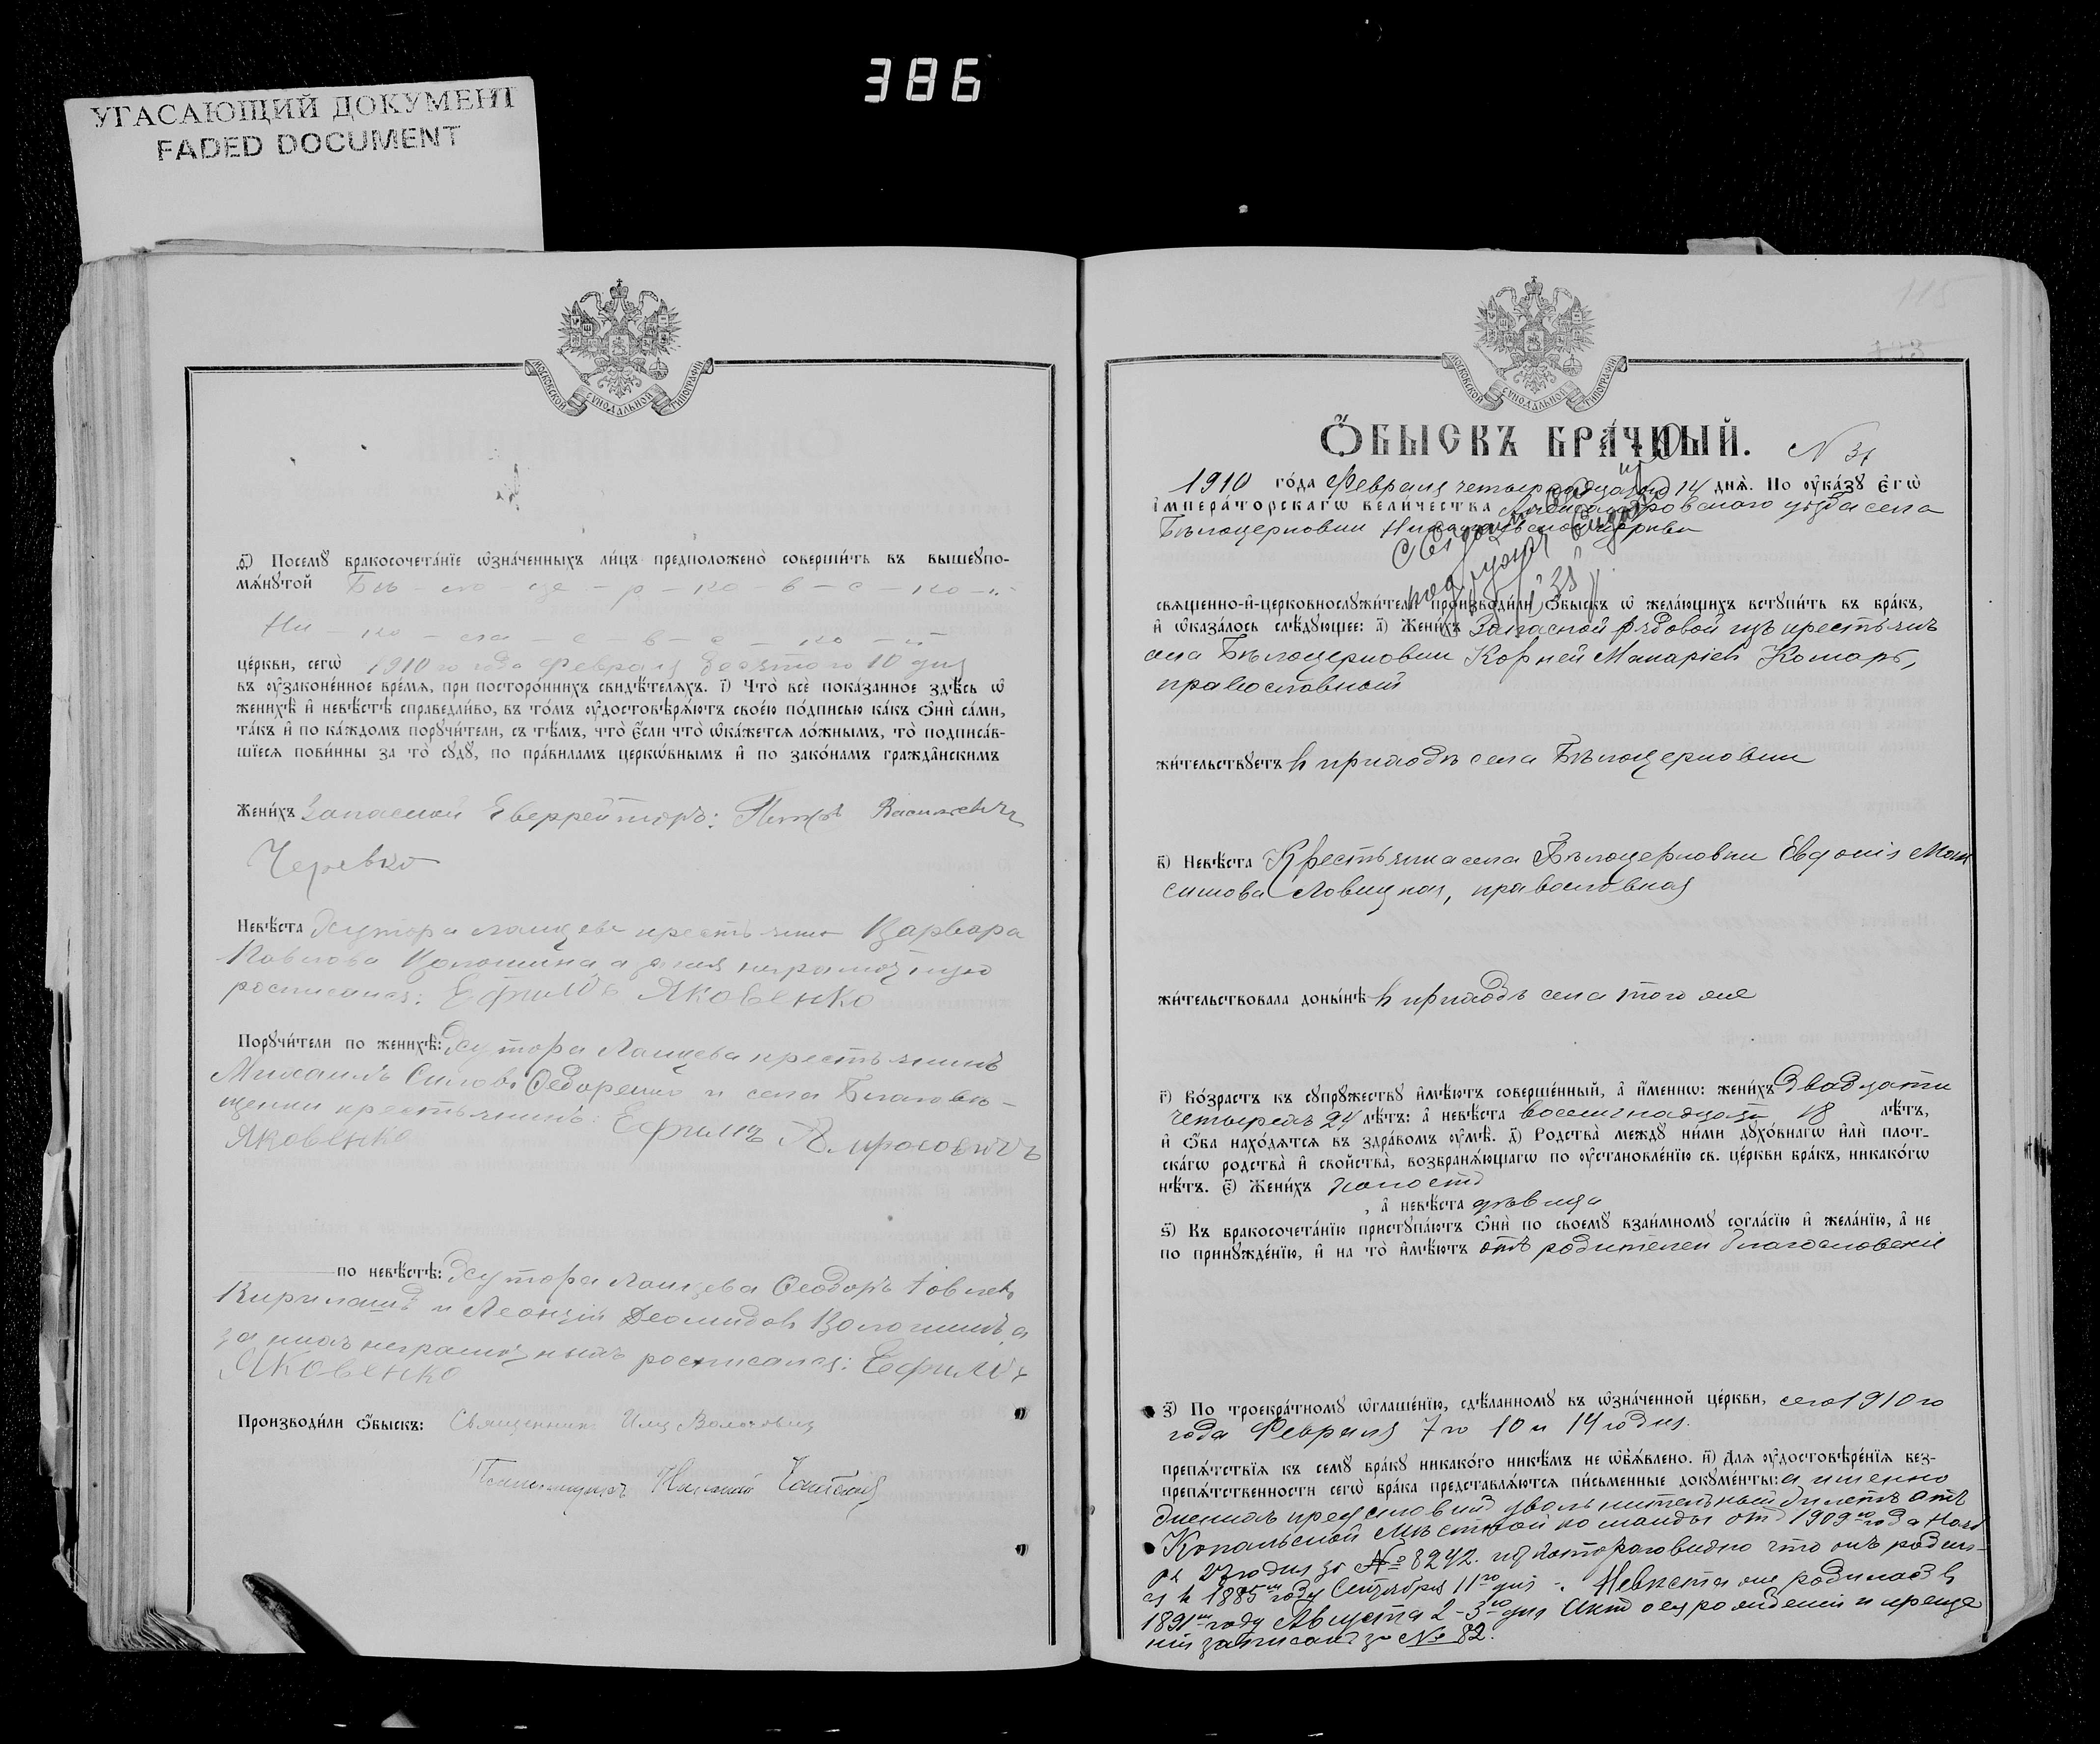 386
УГАСАЮЩИЙ ДОКУМЕНТ
FADED DOCUMENT
МОСКОВСКОЙ СУНОДАЛЬНОЙ ТИПОГРАФІИ
Посему бракосочетáніе ѡзнáченныхъ ли́цъ предположенò соверши́ть въ вышеупо-
мѧ́нутой Бѣ - ло - це - р - ко - в - с - ко - й
Ни - ко - ла - е - в - с - ко - й
цéркви, сегѡ̀ 1910 го года Февраля десятого 10 дня
въ ᲂу҆законéнное врéмѧ, при посторóннихъ свидѣ́телѧхъ. і҃) Чтò всè покáзанное здѣ́сь ѡ҆
женихѣ̀ и҆ невѣ́стѣ справедли́во, въ тóмъ ᲂу҆достовѣрѧ́ютъ своéю пóдписью кáкъ ѻ҆нѝ сáми,
тáкъ и҆ по кáждомъ поручи́тели, съ тѣ́мъ, чтò є҆́сли чтò ѡ҆кáжетсѧ лóжнымъ, тò подписáв-
шіесѧ пови́нны за тò суду̀, по прáвиламъ церкѡ́внымъ и҆ по закóнамъ граждáнскимъ
Жени́хъ Запасной Еверрейторъ: Петръ Васильевъ
Черевко
Невѣ́ста Хутора Ланцева крестьянка Варвара
Павлова Волошина, а за нея неграмотную
росписался: Ефимъ Яковенко
Поручи́тели по женихѣ̀: Хутора Ланцева крестьянинъ
Михаилъ Силовъ Федоренко и села Благовѣ-
щенки крестьянинъ: Ефимъ
Яковенко
по невѣ́стѣ: Хутора Ланцева Феодоръ Іовлевъ
и Леонтій Деомидовъ Волошинъ, а
за нихъ неграмотныхъ росписался: Ефимъ
Яковенко
Производи́ли ѻ҆́быскъ: Священникъ Илія
Псаломщикъ
115
МОСКОВСКОЙ СУНОДАЛЬНОЙ ТИПОГРАФІИ
Ѻ҆́БЫСКЪ БРÁЧНЫЙ. N 31
1910 гóда Февраля четырнадцатого 14 днѧ̀. По ᲂу҆кáзу є҆гѡ̀
і҆мперáторскагѡ вели́чества Александровского уѣзда села
Бѣлоцерковки Николаевской церкви
свѧщенно-и҆-церковнослужи́тели производи́ли ѻ҆́быскъ ѡ҆ желáющихъ вступи́ть въ брáкъ,
и҆ ѡ҆казáлось слѣ́дующее: а҃) Жени́хъ Запасной рядовой изъ крестьянъ
села Бѣлоцерковки Корней Макаріевъ Комаръ,
православный
жи́тельствуетъ в приходѣ села Бѣлоцерковки
в҃) Невѣ́ста Крестьянка села Бѣлоцерковки Евдокія Мак
симова Ловицкая, православная
жи́тельствовала доны́нѣ в приходѣ села того же
г҃) Вóзрастъ къ супрýжеству и҆мѣ́ютъ совершéнный, а҆ и҆́меннѡ: жени́хъ двадцати
четырехъ 24 лѣ́тъ: а҆ невѣ́ста восемнадцати 18 лѣ́тъ,
и҆ ѻ҆́ба нахóдѧтсѧ въ здрáвомъ ᲂу҆мѣ̀. д҃) Родствà междý ни́ми духóвнагѡ и҆лѝ плот-
скáгѡ родствà и҆ свóйства, возбранѧ́ющагѡ по ᲂу҆становлéнію св. цéркви брáкъ, никакóгѡ
нѣ́тъ. є҃) Жени́хъ холостъ
, а҆ невѣ́ста дѣвица
ѕ҃) Къ бракосочетáнію приступáютъ ѻ҆нѝ по своемý взаи́мному соглáсію и҆ желáнію, а҆ не
по принуждéнію, и҆ на тò и҆мѣ́ютъ отъ родителей благословеніе
з҃) По троекрáтному ѡ҆глашéнію, сдѣ́ланному въ ѡ҆знáченной цéркви, сего 1910 го
года Февраля 7 го 10 и 14 го дня.
препѧ́тствіѧ къ семý брáку никакóго никѣ́мъ не ѡ҆б̾ѧ́влено. и҃) Длѧ ᲂу҆достовѣрéніѧ без-
препѧ́тственности сегѡ̀ брáка представлѧ́ютсѧ пи́сьменные докумéнты: а именно
увольнительный билетъ отъ
Копальской Мѣстной команды отъ 1909 го года Нояб
ря 22 го дня за № 8242. изъ котораго видно что онъ родил-
ся в 1885 м году Сентября 11 го дня. Невѣста же родилась в
1891 м году Августа 2-3 го дня Актъ о ея рожденіи и креще
ніи записанъ за № 82.